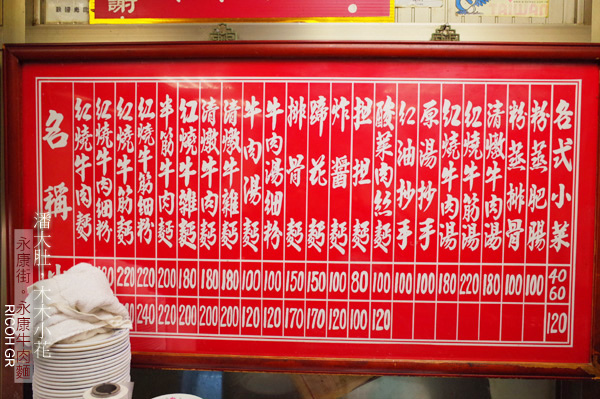 謝
名稱
紅燒牛肉麵
紅燒牛肉細粉
紅燒牛筋麵
紅燒牛筋細粉
半筋牛肉麵
紅燒牛雜麵
清燉牛肉麵
清燉牛雜麵
牛肉湯麵
牛肉湯細粉
排骨麵
蹄花麵
炸醬麵
担担麵
酸菜肉絲麵
紅油抄手
原湯抄手
紅燒牛肉湯
紅燒牛筋湯
清燉牛肉湯
粉蒸排骨
粉蒸肥腸
各式小菜
220 220 200 180 180 180 100 100 150 150 100 80 100 100 100 180 220 180 100 100 40 60
240 220 200 200 200 120 120 170 170 120 100 120 120
潘大肚.木木小花
永康街。永康牛肉麵
RICOH GR